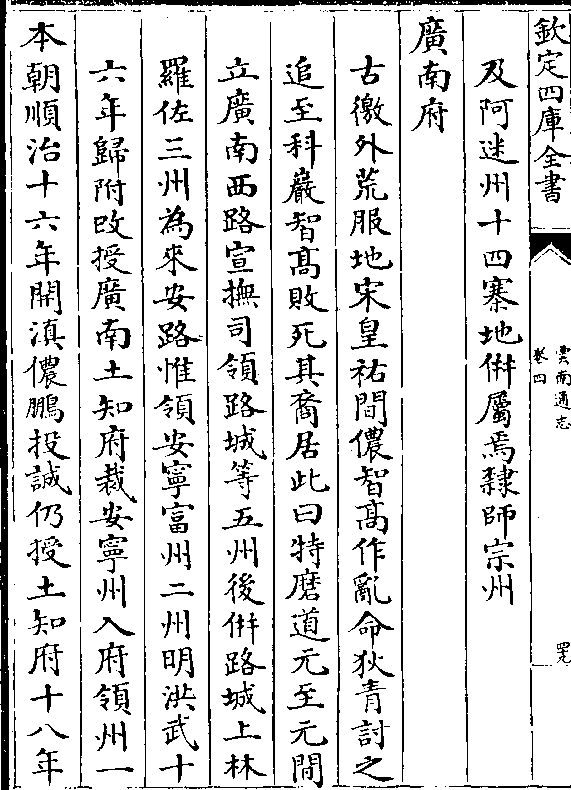 欽定四庫全書
雲南通志
卷四
罕九
及阿迷州十四寨地倂屬焉隸師宗州
廣南府
古徼外荒服地宋皇祐間儂智髙作亂命狄青討之
追至科巖智髙敗死其裔居此曰特磨道元至元間
立廣南西路宣撫司領路城等五州後倂路城上林
羅佐三州為來安路惟領安寧富州二州明洪武十
六年歸附改授廣南土知府裁安寧州入府領州一
本朝順治十六年開滇儂鵬投誠仍授土知府十八年